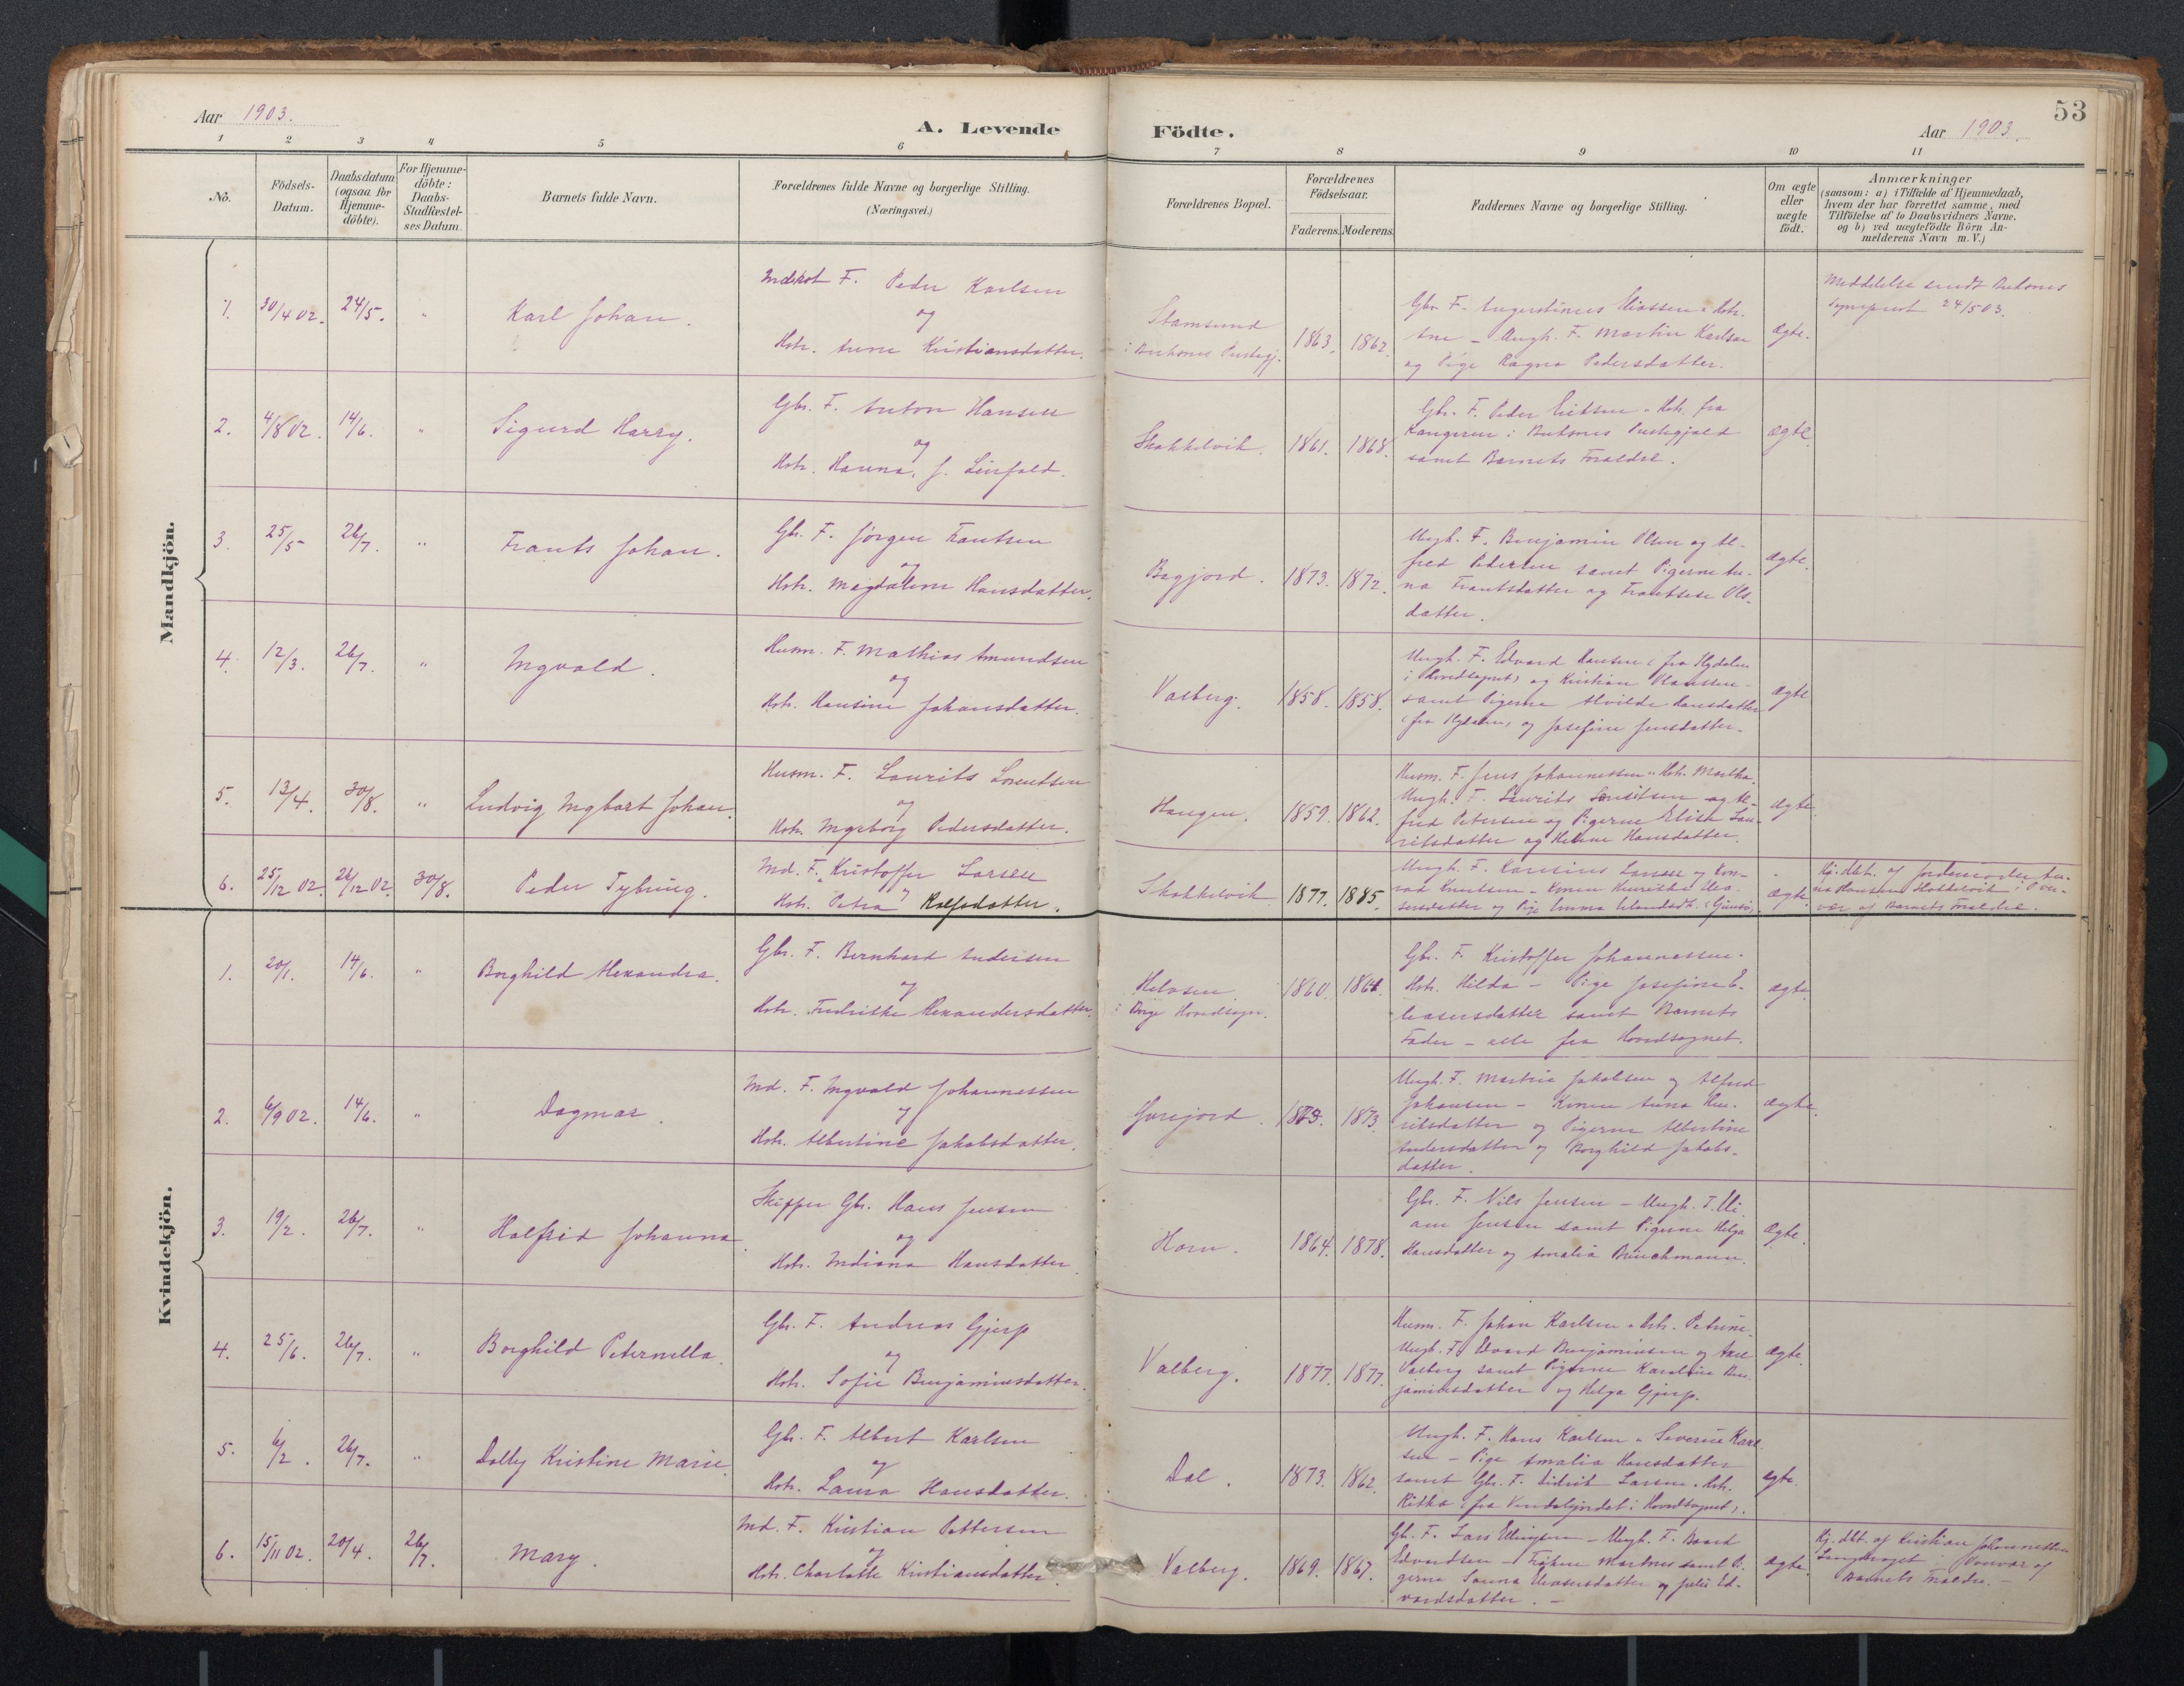 Aar 1903.
A. Levende Födte.
Aar 1903.
53
1 2 3 4 5 6 7 8 9 10 11
No.
Födsels-
Datum.
Daabsdatum
(ogsaa for
Hjemme-
döbte).
For Hjemme-
döbte:
Daabs-
Stadfæstel-
ses Datum.
Barnets fulde Navn.
Forældrenes fulde Navne og borgerlige Stilling.
(Næringsvei.)
Forældrenes Bopæl.
Forældrenes
Födselsaar.
Faderens. Moderens.
Faddernes Navne og borgerlige Stilling.
Om ægte
eller
uægte
födt.
Anmærkninger
(saasom: a) i Tilfælde af Hjemmedaab,
hvem der har forrettet samme, med
Tilföielse af to Daabsvidners Navne.
og b) ved uægtefödte Börn An-
melderens Navn m. V.)
Mandkjön.
1. 30/4 02. 24/5. " Karl Johan.
Inderst F. Peder Karlsen
og
Hstr. Anne Kristiansdatter.
Stamsund
i Buksnes Prestegj.
1863. 1862.
Gbr. F. Augustinus Eliassen " Hstr.
Ane - Ungk. F. Martin Karlsen
og Pige Ragna Pedersdatter.
Ægte.
Meddelelse sendt Buksnes
Sogneprest 24/5 03.
2. 4/8 02. 14/6. " Sigurd Harry.
Gbr. F. Anton Hansen
og
Hstr. Hanna, f. Leirfald.
Skakkelvik. 1861. 1868.
Gbr. F. Peder Eriksen " Hstr. fra
Haugeren i Buksnes Prestegjæld
samt Barnets Forældre.
Ægte
3. 25/5 26/7. " Frants Johan.
Gbr. F. Jørgen Frantsen
og
Hstr. Magdalene Hansdatter.
Bagjord. 1873. 1872.
Ungk. F. Benjamin Olsen og Al-
fred Pedersen samt Pigerne An-
na Frantsdatter og Frantsese Ols-
datter.
Ægte.
4. 12/3. 26/7. " Ingvald.
Husm. F. Mathias Amundsen
og
Hstr. Hansine Johansdatter.
Valberg. 1858. 1858.
Ungk. F. Edvard Hansen (fra Rydalen
i Hovedsognet) og Kristian Olaussen -
samt Pigerne Alvilde Hansdatter
(fra Rydalen) og Josefine Jensdatter.
Ægte
5. 13/4. 30/8. " Ludvig Ingbart Johan.
Husm. F. Laurits Lorentsen
og
Hstr. Ingeborg Pedersdatter.
Haugen. 1859. 1862.
Husm. F. Jens Johannessen " Hstr. Martha.
Ungk. F. Laurits Lauritsen og Al-
fred Petersen og Pigerne Elise Lau-
ritsdatter og Helene Hansdatter.
Ægte.
6. 25/12 02. 26/12 02. 30/8. Peder Tybring.
Md. F. Kristoffer Larsen
og
Hstr. Petra Rolfsdatter.
Skakkelvik. 1877. 1885.
Ungk. F. Hansinus Larsen og Kon-
rad Knutsen - Konen Henrikke Elea-
sersdatter og Pige Emma
Ægte.
Hj. døbt. af Jordemoder An-
na Hansen Skakkelvik; Oven-
vær. af Barnets Forældre.
Kvindekjön.
1. 20/1. 14/6. " Borghild Alexandra.
Gbr. F. Bernhard Andersen
og
Hstr. Fredrikke Alexandersdatter.
Helosen
i Borge Hovedsogn.
1860. 1861.
Gbr. F. Kristoffer Johannessen.
Hstr. Hilda - Pige Josefine E-
leasersdatter samt Barnets
Fader - alle fra Hovedsognet.
Ægte.
2. 6/9 02. 14/6. " Dagmar.
Md. F. Ingvald Johannessen
og
Hstr. Albertine Jakobsdatter.
Gorejord. 1873. 1873.
Ungk. F. Martin Jakobsen og Alfred
Johansen - Konen Anna Hen-
riksdatter og Pigerne Albertine
Andersdatter og Borghild Jakobs-
datter.
Ægte.
3. 19/2. 26/7. " Halfrid Johanna.
Skipper Gbr. Hans Jensen
og
Hstr. Indiana Hansdatter.
Horn. 1864. 1878.
Gbr. F. Nils Jensen - Ungk. F. Uli-
am Jensen samt Pigerne Helga
Hansdatter og Amalia Brinchmann.
Ægte.
4. 25/6. 26/7. " Borghild Peternella.
Gbr. F. Andreas Gjerp
og
Hstr. Sofie Benjaminsdatter.
Valberg. 1877. 1877.
Husm. F. Johan Karlsen " Hstr. Petrine.
Ungk. F. Edvard Benjaminsen og Axel
Valberg samt Pigerne Karoline Ben-
jaminsdatter og Helga Gjerp.
Ægte.
5. 6/2. 26/7. " Dolly Kristine Marie.
Gbr. F. Albert Karlsen
og
Hstr. Laura Hansdatter.
Dal. 1873. 1862.
Ungk. F. Hans Karlsen " Severin Karl-
sen - Pige Amalia Hansdatter
samt Gbr. F. Didrik Larsen " Hstr.
Rikka (fra i Hovedsognet).
Ægte.
6. 15/11 02. 20/4. 26/7. Mary.
Md. F. Kristian Pettersen
og
Hstr. Charlotte Kristiansdatter.
Valberg. 1869. 1867.
Gbr. F. Lars Ellingsen - Ungk. F. Baard
Edvardsen - samt Pi-
gerne Sanna Eleasersdatter og Julie Ed-
vardsdatter. -
Ægte.
Hj. døbt. af Kristian Johannessen
Ovenvær. af
Barnets Forældre. -